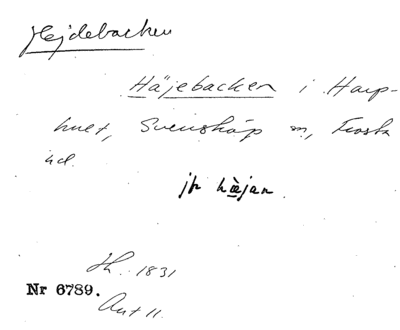 Hejdebacken
Häjebacken i Harp-
huet, Svensköp sn, Frosta
hd
jfr hæ̀jan.
Hh. 1831
Nr 6789.
Ant 11.